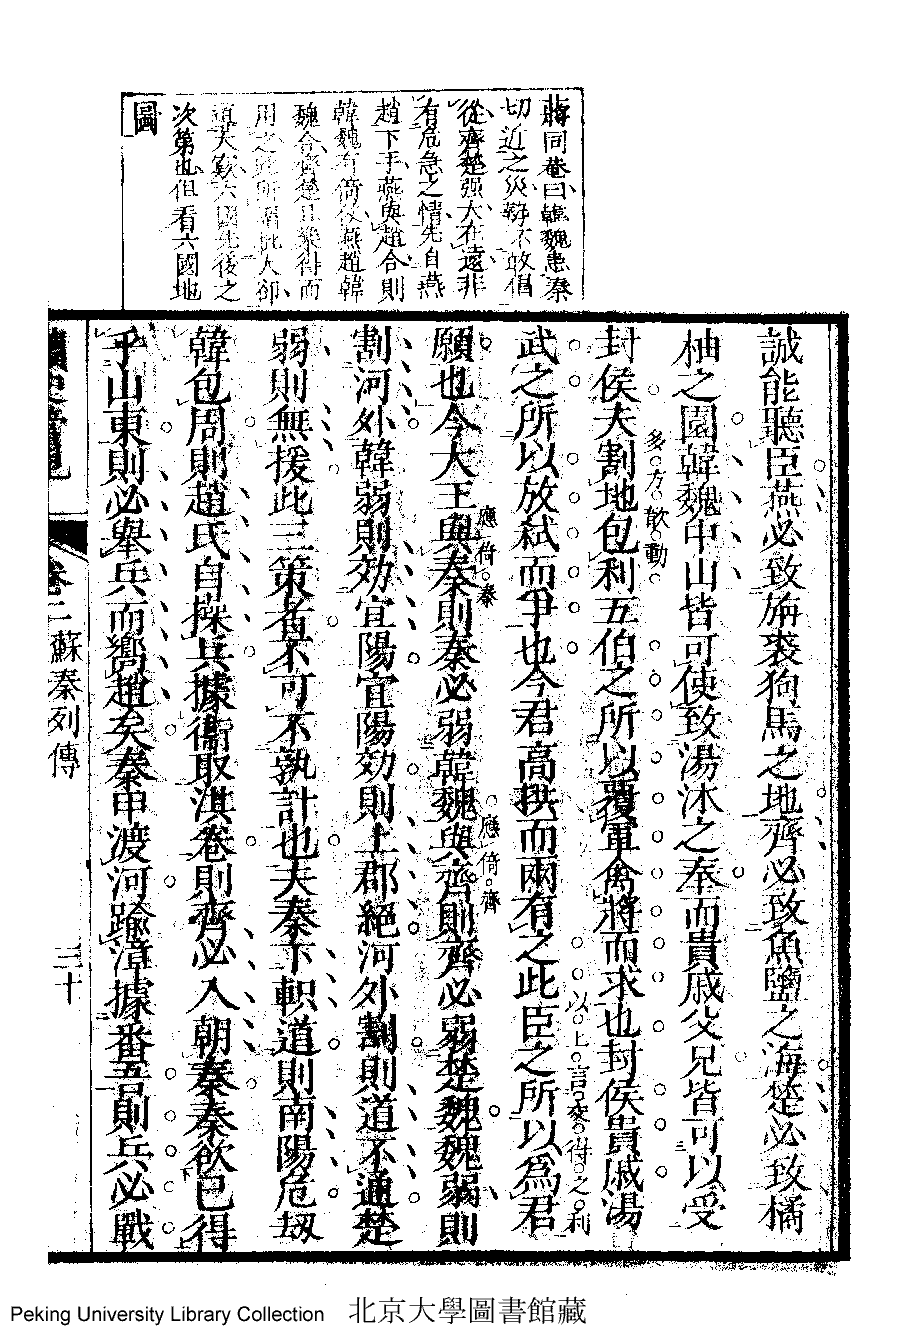 蔣同菴曰韓魏患秦
切近之災勢不敢倡
從齊楚强大在遠非
有危急之情先自燕
趙下手燕與趙合則
韓魏有倚仗燕趙韓
魏合齊楚且樂得而
用之所謂批大郤
道大窾六國先後之
次第也但看六國地
圖
誠能聽臣燕必致旃裘狗馬之地齊必致魚鹽之海楚必致橘
柚之園韓魏中山皆可使致湯沐之奉而貴戚父兄皆可以受
多方歆動
封侯夫割地包利五伯之所以覆軍禽將而求也封侯貴戚湯
以上言交得之利
武之所以放弒而爭也今君高拱而兩有之此臣之所以為君
願也今大王與秦則秦必弱韓魏與齊則齊必弱楚魏魏弱則
應倚秦
應倚齊
割河外韓弱則効宜陽宜陽効則上郡絕河外割則道不通楚
弱則無援此三策者不可不孰計也夫秦下軹道則南陽危刼
韓包周則趙氏自操兵據衞取淇卷則齊必入朝秦秦欲已得
乎山東則必舉兵而嚮趙矣秦甲渡河踰漳據番吾則兵必戰
卷二 蘇秦列傳
三十
Peking University Library Collection 北京大學圖書館藏